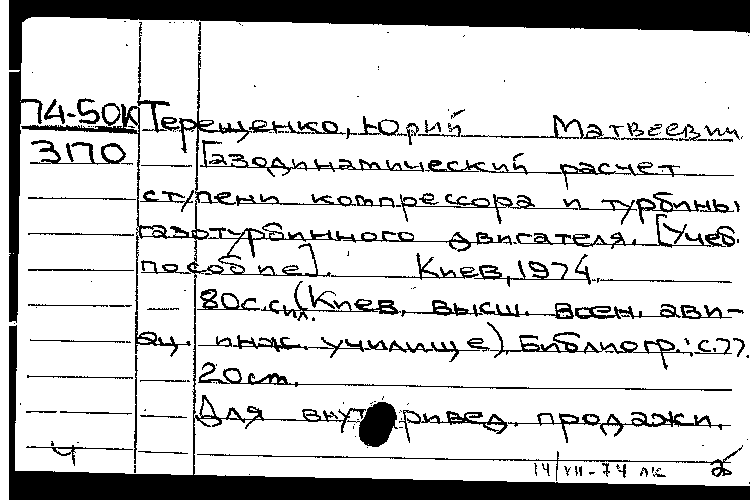 74-50К Терещенко, Юрий Матвеевич
3170 Газодинамический расчет
ступени компрессора и турбины
газотурбинного двигателя. [Учеб.
пособие]. Киев, 1974.
80с.с ил. (Киев. высш. воен. ави-
ац. инж. училище). Библиогр.: с.77.
20см.
Для внутриевед. продажи.
Ч
14/VII-74 лк